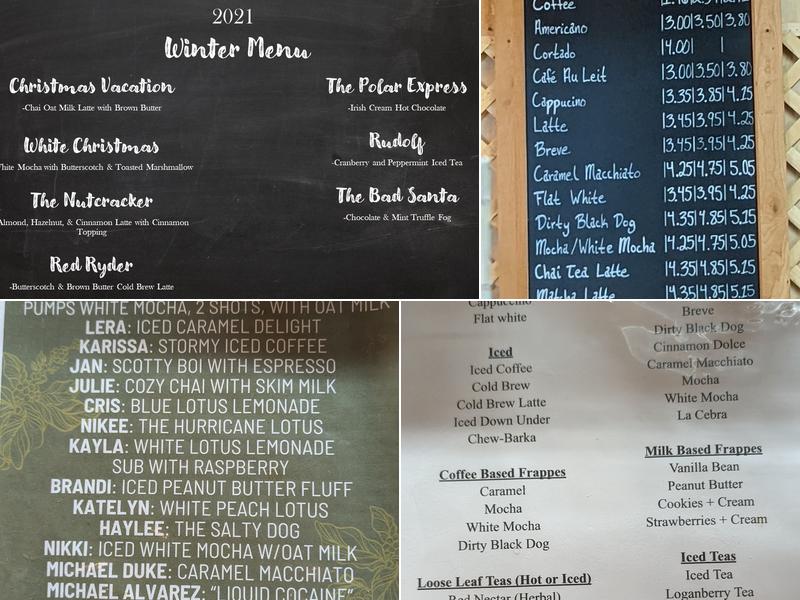 2021
Winter Menu
Christmas Vacation
-Chai Oat Milk Latte with Brown Butter
White Christmas
White Mocha with Butterscotch & Toasted Marshmallow
The Nutcracker
Almond, Hazelnut, & Cinnamon Latte with Cinnamon
Topping
Red Ryder
-Butterscotch & Brown Butter Cold Brew Latte
The Polar Express
-Irish Cream Hot Chocolate
Rudolf
-Cranberry and Peppermint Iced Tea
The Bad Santa
-Chocolate & Mint Truffle Fog
Coffee
Americano |3.00|3.50|3.80
Cortado |4.00| |
Café Au Leit |3.00|3.50|3.80
Cappucino |3.35|3.85|4.15
Latte |3.45|3.95|4.25
Breve |3.45|3.95|4.25
Caramel Macchiato |4.25|4.75|5.05
Flat White |3.45|3.95|4.25
Dirty Black Dog |4.35|4.85|5.15
Mocha/White Mocha |4.25|4.75|5.05
Chai Tea Latte |4.35|4.85|5.15
Matcha Latte |4.35|4.85|5.15
PUMPS WHITE MOCHA, 2 SHOTS, WITH OAT MILK
LERA: ICED CARAMEL DELIGHT
KARISSA: STORMY ICED COFFEE
JAN: SCOTTY BOI WITH ESPRESSO
JULIE: COZY CHAI WITH SKIM MILK
CRIS: BLUE LOTUS LEMONADE
NIKEE: THE HURRICANE LOTUS
KAYLA: WHITE LOTUS LEMONADE
SUB WITH RASPBERRY
BRANDI: ICED PEANUT BUTTER FLUFF
KATELYN: WHITE PEACH LOTUS
HAYLEE: THE SALTY DOG
NIKKI: ICED WHITE MOCHA W/OAT MILK
MICHAEL DUKE: CARAMEL MACCHIATO
MICHAEL ALVAREZ: "LIQUID COCAINE"
Cappuccino
Flat white
Iced
Iced Coffee
Cold Brew
Cold Brew Latte
Iced Down Under
Chew-Barka
Coffee Based Frappes
Caramel
Mocha
White Mocha
Dirty Black Dog
Loose Leaf Teas (Hot or Iced)
Red Nectar (Herbal)
Breve
Dirty Black Dog
Cinnamon Dolce
Caramel Macchiato
Mocha
White Mocha
La Cebra
Milk Based Frappes
Vanilla Bean
Peanut Butter
Cookies + Cream
Strawberries + Cream
Iced Teas
Iced Tea
Loganberry Tea